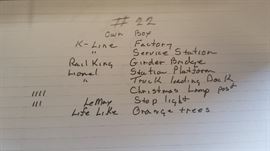 # 22
Own Box
K-Line Factory
" Service Station
Rail King Girder Bridge
Lionel Station Platform
" Truck loading Dock
//// Christmas Lamp post
/// LeMax Stop light
Life Like Orange trees